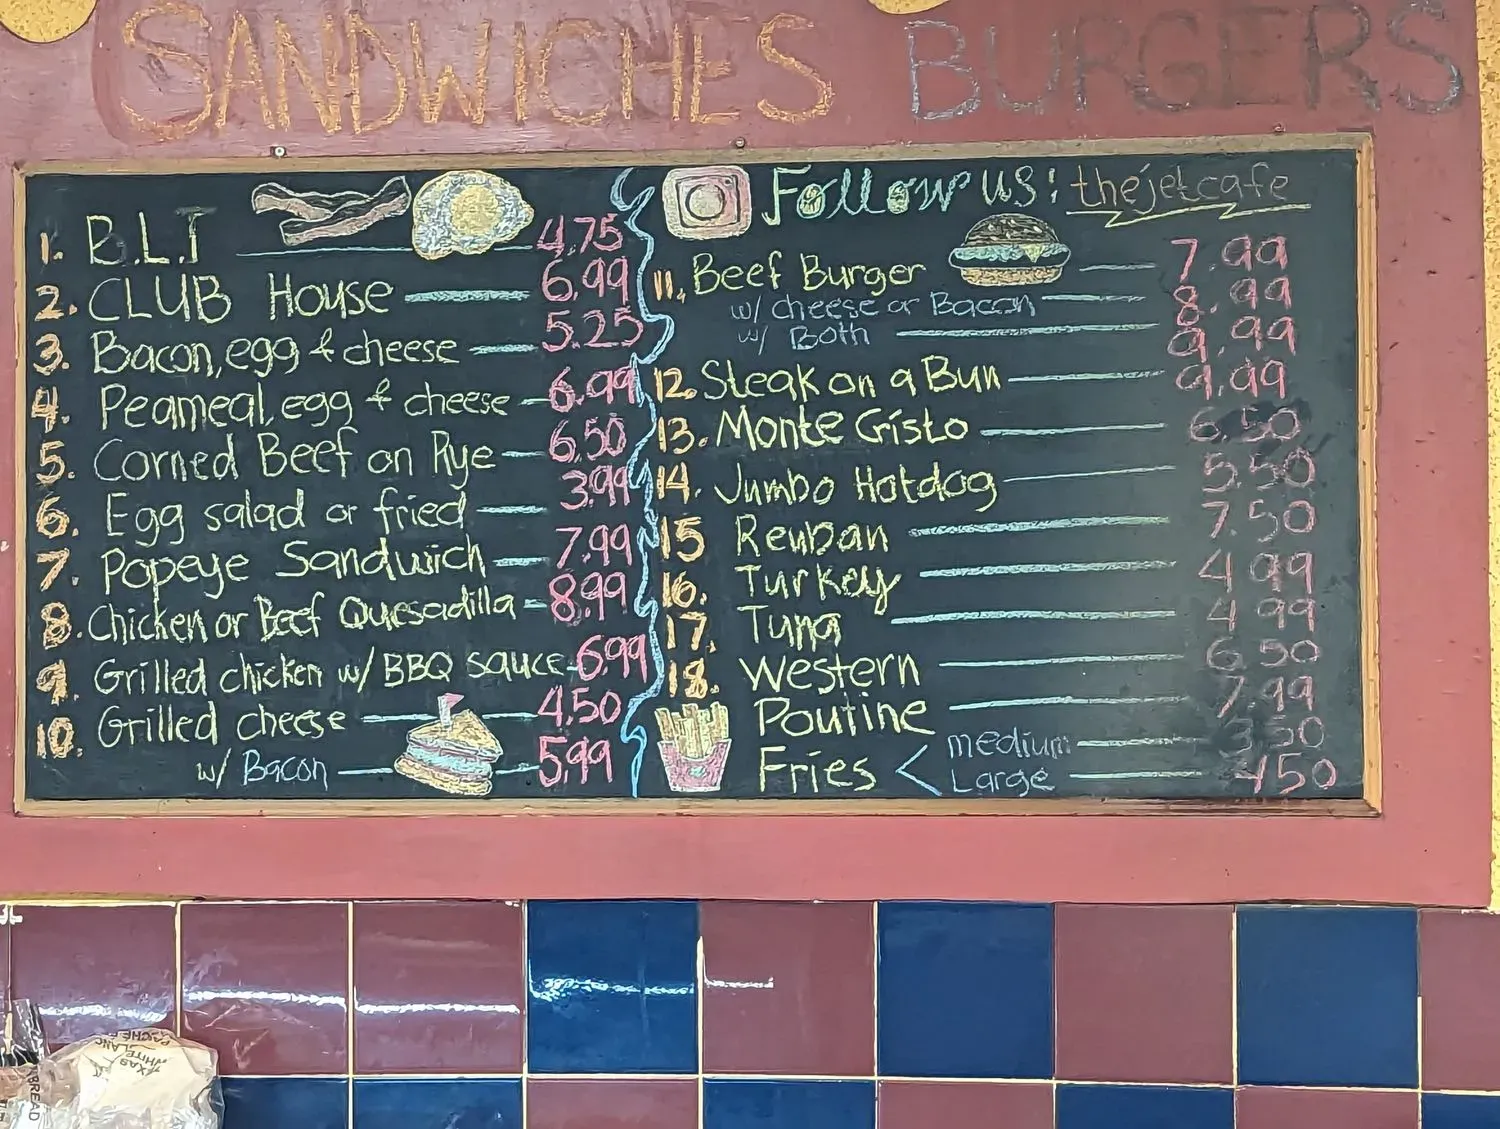 SANDWICHES BURGERS
1. B.L.T 4.75
2. CLUB House 6.99
3. Bacon, egg & cheese 5.25
4. Peameal, egg & cheese 6.99
5. Corned Beef on Rye 6.50
6. Egg salad or fried 3.99
7. Popeye Sandwich 7.99
8. Chicken or Beef Quesadilla 8.99
9. Grilled chicken w/ BBQ sauce 6.99
10. Grilled cheese 4.50
w/ Bacon 5.99
Follow us: thejetcafe
11. Beef Burger 7.99
w/ cheese or Bacon 8.99
w/ Both 9.99
12. Steak on a Bun 9.99
13. Monte Cristo 6.50
14. Jumbo Hotdog 5.50
15 Reuban 7.50
16. Turkey 4.99
17. Tuna 4.99
18. Western 6.50
Poutine 7.99
Fries < medium 3.50
Large 4.50
WHITE
BREAD